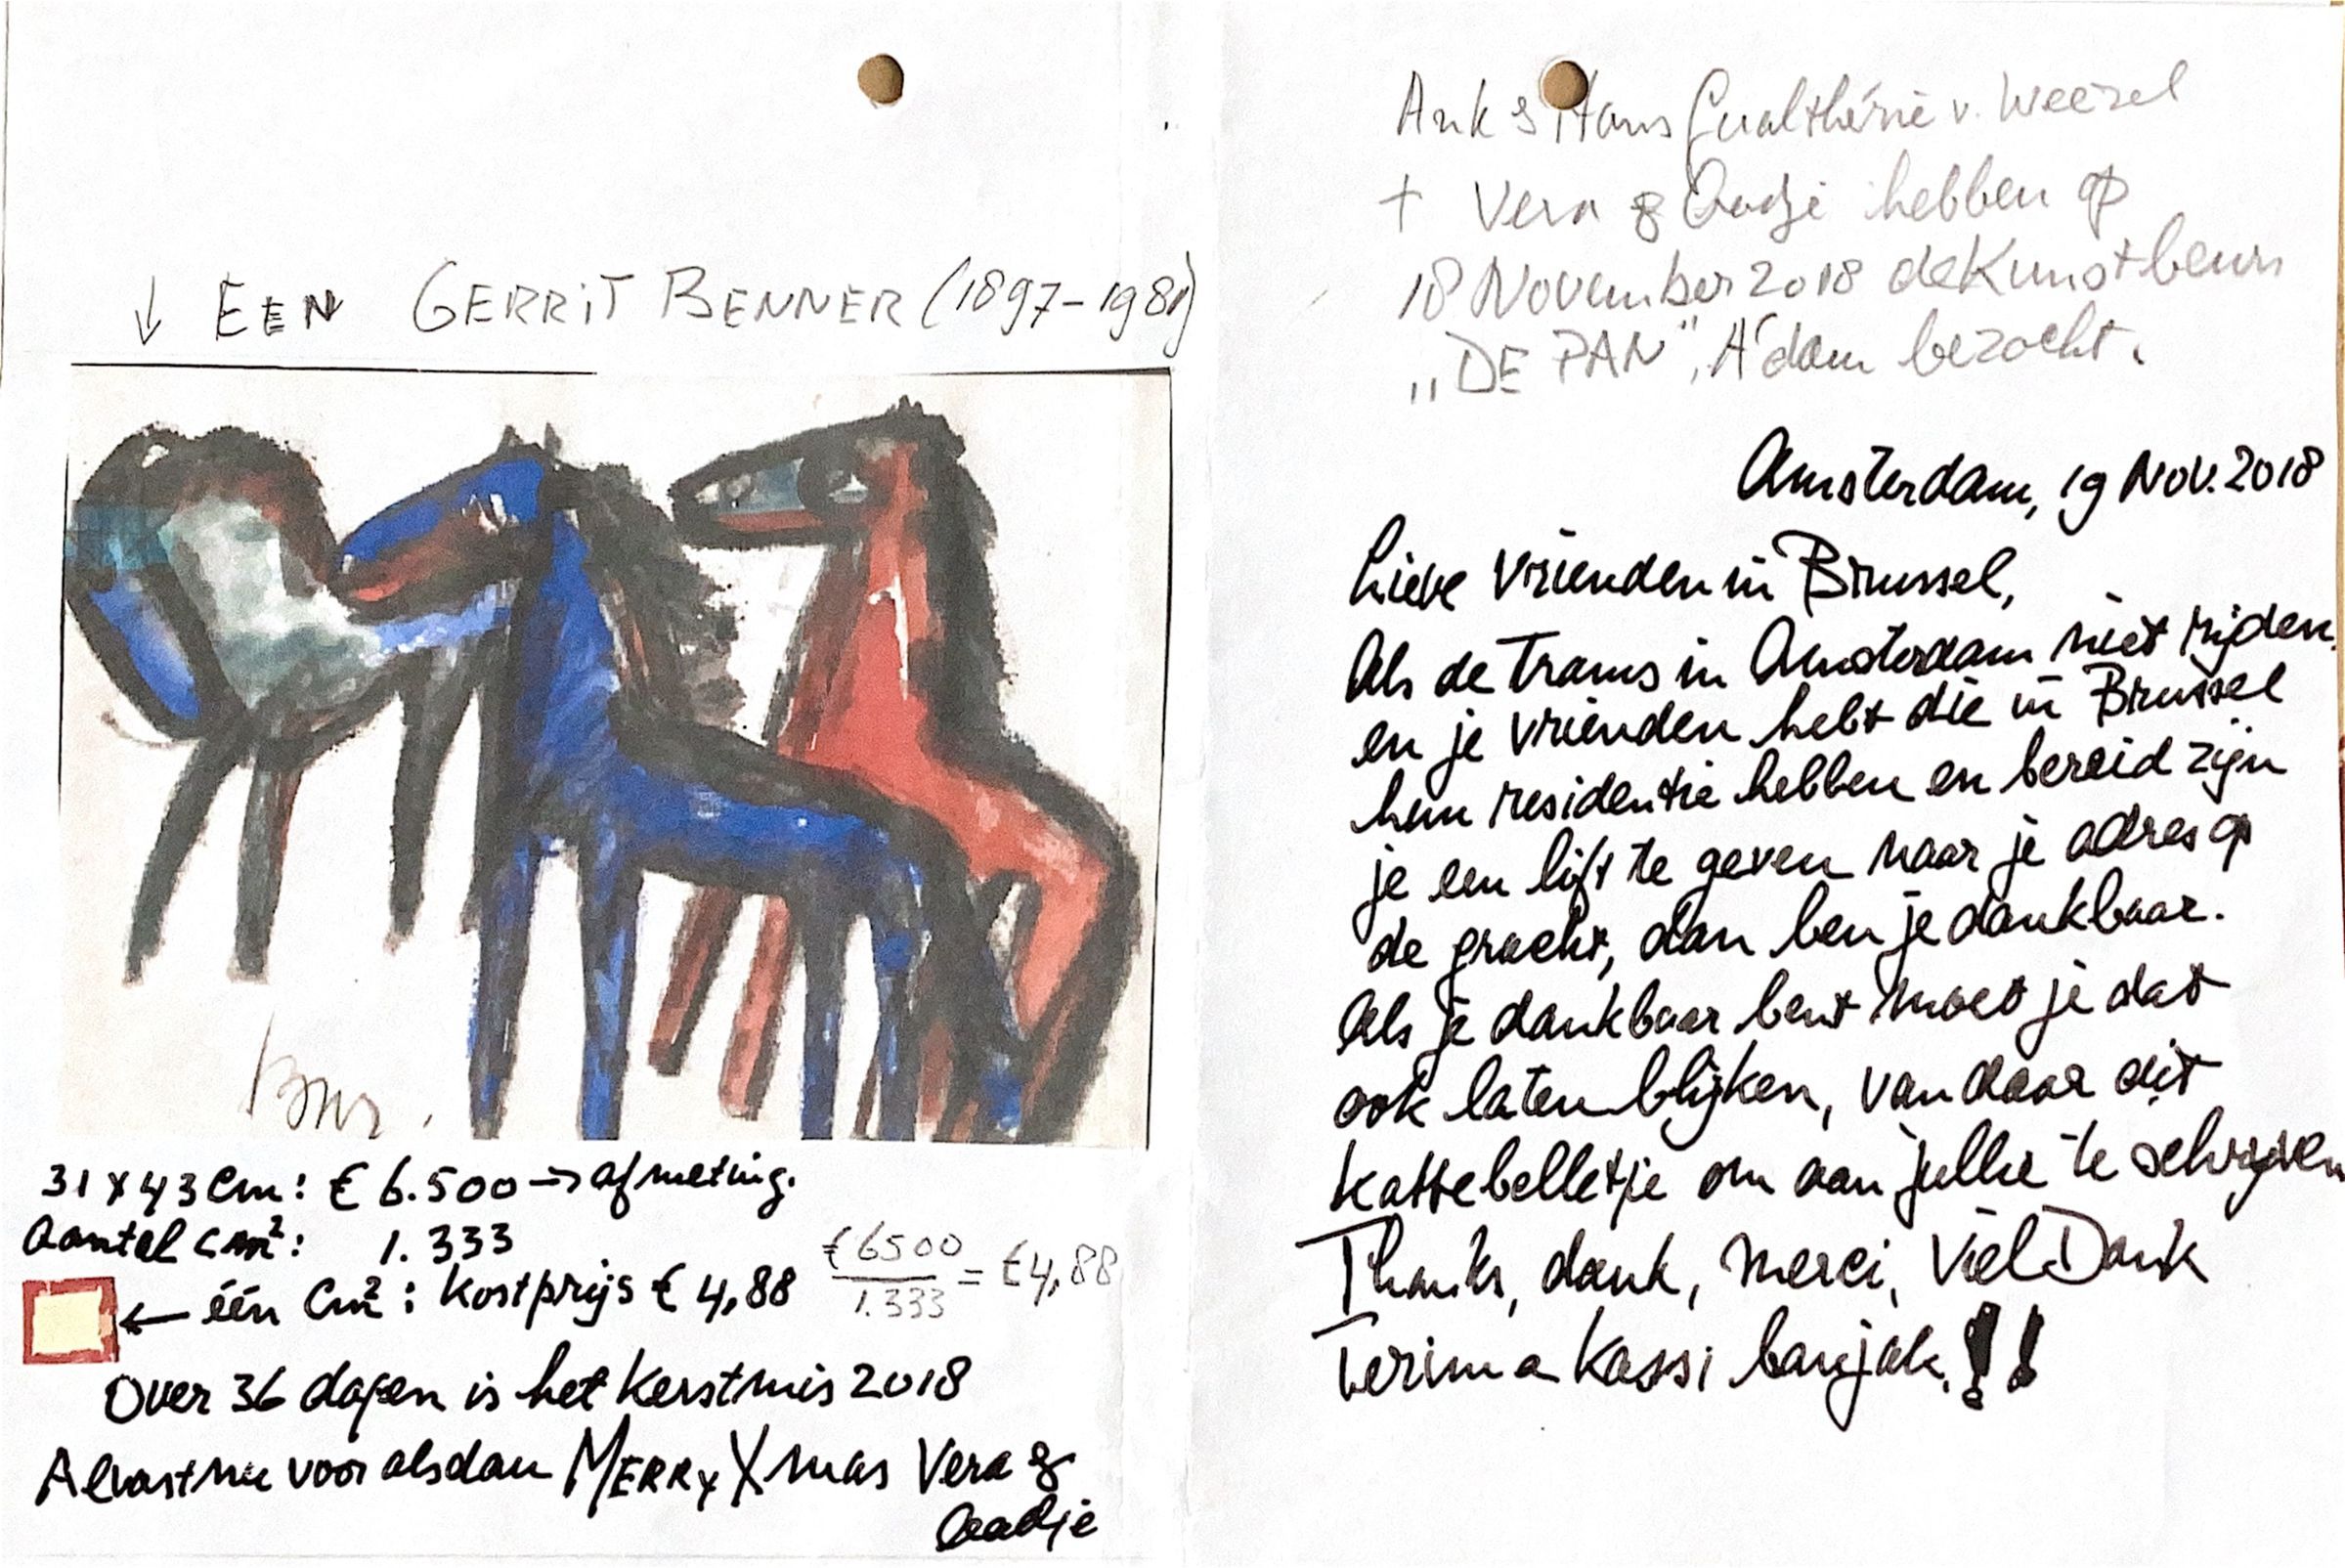 ↓ EEN GERRIT BENNER (1897-1981)
31 x 43 cm: € 6.500 → afmeting.
Aantal cm²: 1.333
← één cm²: kostprijs € 4,88
€ 6500 / 1.333 = € 4,88
Over 36 dagen is het Kerstmis 2018
Alvast nu voor alsdan MERRY Xmas Vera &
Aadje
Ank & Hans Gualthérie v. Weezel
+ Vera & Aadje hebben op
18 November 2018 de Kunstbeurs
„DE PAN", A'dam bezocht.
Amsterdam, 19 Nov. 2018
Lieve vrienden in Brussel,
Als de trams in Amsterdam niet rijden
en je vrienden hebt die in Brussel
hun residentie hebben en bereid zijn
je een lift te geven naar je adres op
de gracht, dan ben je dankbaar.
Als je dankbaar bent moet je dat
ook laten blijken, van daar dit
kattebelletje om aan jullie te schrijven
Thanks, dank, merci, Viel Dank
Terima Kassi banjak!!